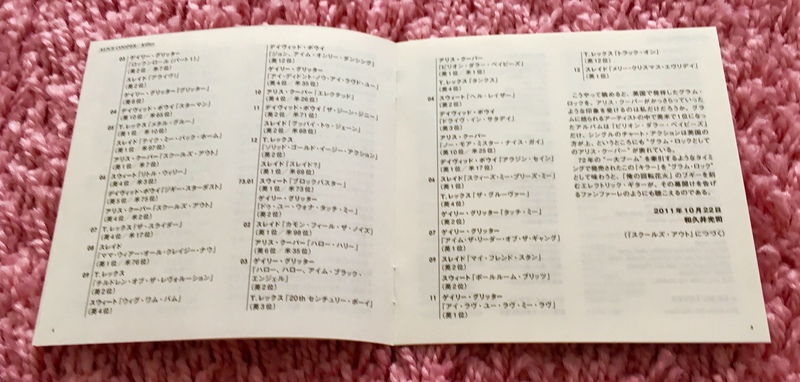 ALICE COOPER/Killer
03 ゲイリー・グリッター
「ロックンロール(パート1)」
(英2位／米7位)
スレイド『アライヴ!』
(英2位)
ゲイリー・グリッター『グリッター』
(英8位)
04 デイヴィッド・ボウイ「スターマン」
(英10位／米65位)
05 T.レックス「メタル・グルー」
(英1位)
スレイド「テイク・ミー・バック・ホーム」
(英1位／米97位)
アリス・クーパー「スクールズ・アウト」
(英1位／米7位)
06 スウィート「リトル・ウィリー」
(英4位／米3位)
デイヴィッド・ボウイ『ジギー・スターダスト』
(英5位／米75位)
アリス・クーパー『スクールズ・アウト』
(英4位／米2位)
07 T.レックス『ザ・スライダー』
(英4位／米17位)
08 スレイド
「ママ・ウィアー・オール・クレイジー・ナウ」
(英1位／米76位)
09 T.レックス
「チルドレン・オブ・ザ・レヴォルーション」
(英2位)
スウィート「ウィグ・ワム・バム」
(英4位)
デイヴィッド・ボウイ
「ジョン、アイム・オンリー・ダンシング」
(英12位)
ゲイリー・グリッター
「アイ・ディドント・ノウ・アイ・ラヴド・ユー」
(英4位／米35位)
10 アリス・クーパー「エレクテッド」
(英4位／米26位)
11 デイヴィッド・ボウイ「ザ・ジーン・ジニー」
(英2位／米71位)
スレイド「グッバイ・トゥ・ジェーン」
(英2位／米68位)
12 T.レックス
「ソリッド・ゴールド・イージー・アクション」
(英2位)
スレイド『スレイド?』
(英1位／米69位)
73.01 スウィート「ブロックバスター」
(英1位／米73位)
ゲイリー・グリッター
「ドゥ・ユー・ウォナ・タッチ・ミー」
(英2位)
02 スレイド「カモン・フィール・ザ・ノイズ」
(英1位／米98位)
アリス・クーパー「ハロー・ハリー」
(英6位／米35位)
03 ゲイリー・グリッター
「ハロー、ハロー、アイム・ブラック・
エンジェル」
(英2位)
T.レックス「20th センチュリー・ボーイ」
(英3位)
アリス・クーパー
『ビリオン・ダラー・ベイビーズ』
(英1位／米1位)
T.レックス『タンクス』
(英4位)
04 スウィート「ヘル・レイザー」
(英2位)
デイヴィッド・ボウイ
「ドライヴ・イン・サタデイ」
(英3位)
アリス・クーパー
「ノー・モア・ミスター・ナイス・ガイ」
(英10位／米25位)
デイヴィッド・ボウイ『アラジン・セイン』
(英1位／米17位)
スレイド「スウィーズ・ミー・プリーズ・ミー」
(英1位)
T.レックス「ザ・グルーヴァー」
(英4位)
ゲイリー・グリッター『タッチ・ミー』
(英2位)
07 ゲイリー・グリッター
「アイム・ザ・リーダー・オブ・ザ・ギャング」
(英1位)
09 スレイド「マイ・フレンド・スタン」
(英2位)
スウィート「ボールルーム・ブリッツ」
(英2位)
11 ゲイリー・グリッター
「アイ・ラヴ・ユー・ラヴ・ミー・ラヴ」
(英1位)
T.レックス「トラック・オン」
(英12位)
12 スレイド「メリー・クリスマス・エヴリデイ」
(英1位)
こうやって眺めると、英国で発祥したグラム・
ロックを、アリス・クーパーがかっさらっていった
ような印象を受けるのは私だけだろうか。グラ
ムに括られるアーティストの中で英米で1位になっ
たアルバムは『ビリオン・ダラー・ベイビーズ』
だけ。シングルのチャート・アクションは英国の
方が上、というところにも“グラム・ロックとして
のアリス・クーパー”が表れている。
72年の“一大ブーム”を牽引するようなタイミ
ングで発売されたこの『キラー』を“グラム・ロック”
として味わうと、「俺の回転花火」のブギーを刻
むエレクトリック・ギターが、その幕開けを告げ
るファンファーレのようにも聴こえるのである。
2011年10月22日
和久井光司
(『スクールズ・アウト』につづく)